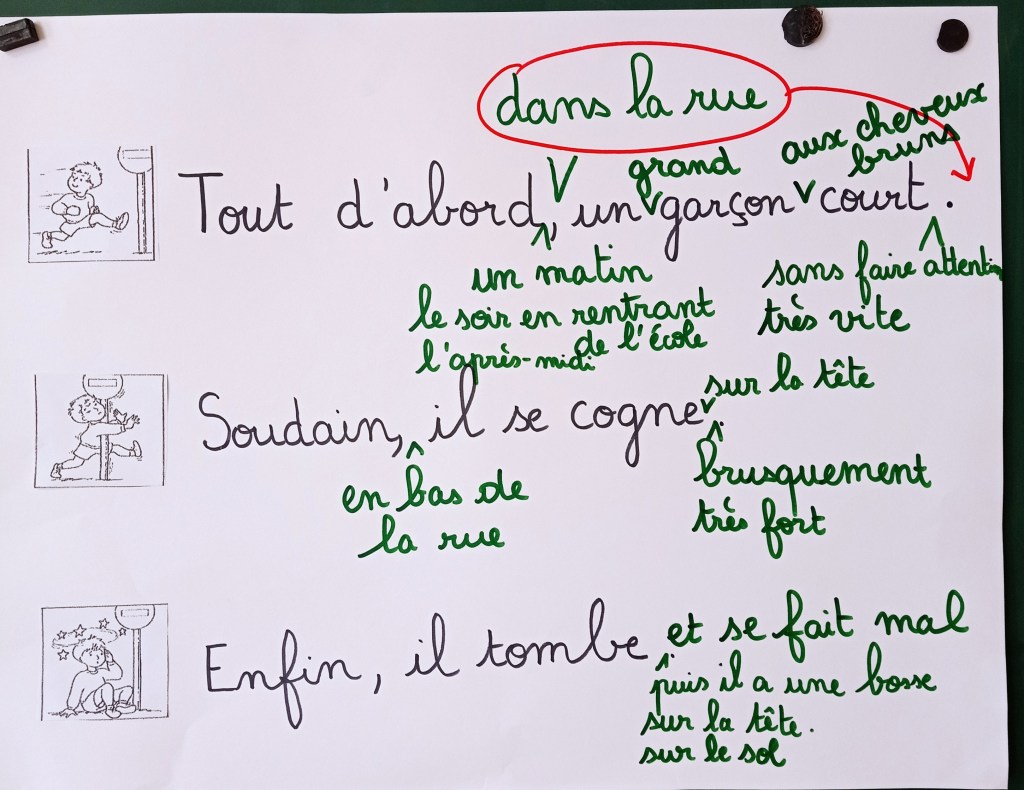 dans la rue
grand
aux cheveux
bruns
Tout d'abord, un garçon court.
un matin
sans faire attention
le soir en rentrant
de l'école
très vite
l'après-midi
sur la tête
Soudain, il se cogne.
en bas de
la rue
brusquement
très fort
et se fait mal
Enfin, il tombe
puis il a une bosse
sur la tête.
sur le sol